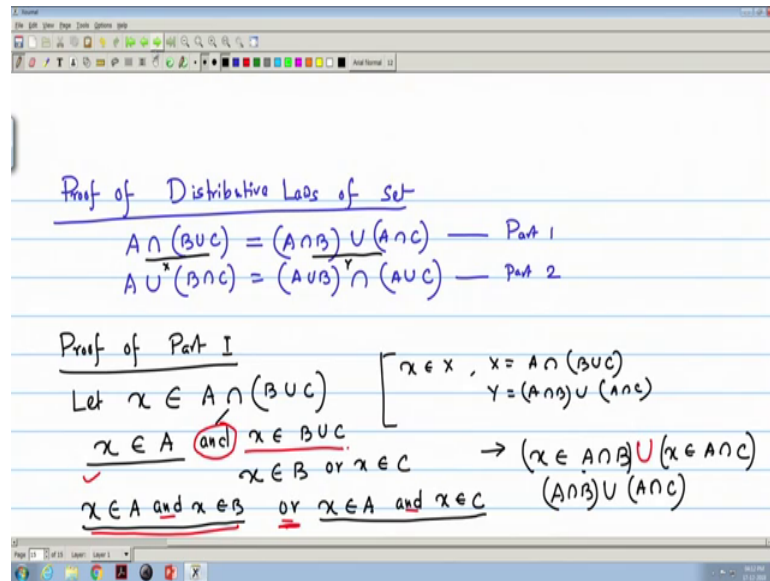 Journal
File Edit View Page Tools Options Help
Arial Normal 12
Proof of Distributive Laws of set
A ∩ (B ∪ C) = (A ∩ B) ∪ (A ∩ C) — Part 1
X Y
A ∪ (B ∩ C) = (A ∪ B) ∩ (A ∪ C) — Part 2
Proof of Part I
Let x ∈ A ∩ (B ∪ C)
x ∈ A and x ∈ B ∪ C
x ∈ B or x ∈ C
x ∈ A and x ∈ B or x ∈ A and x ∈ C
x ∈ X , X = A ∩ (B ∪ C)
Y = (A ∩ B) ∪ (A ∩ C)
→ (x ∈ A ∩ B) ∪ (x ∈ A ∩ C)
(A ∩ B) ∪ (A ∩ C)
Page 15 of 15 Layer: Layer 1